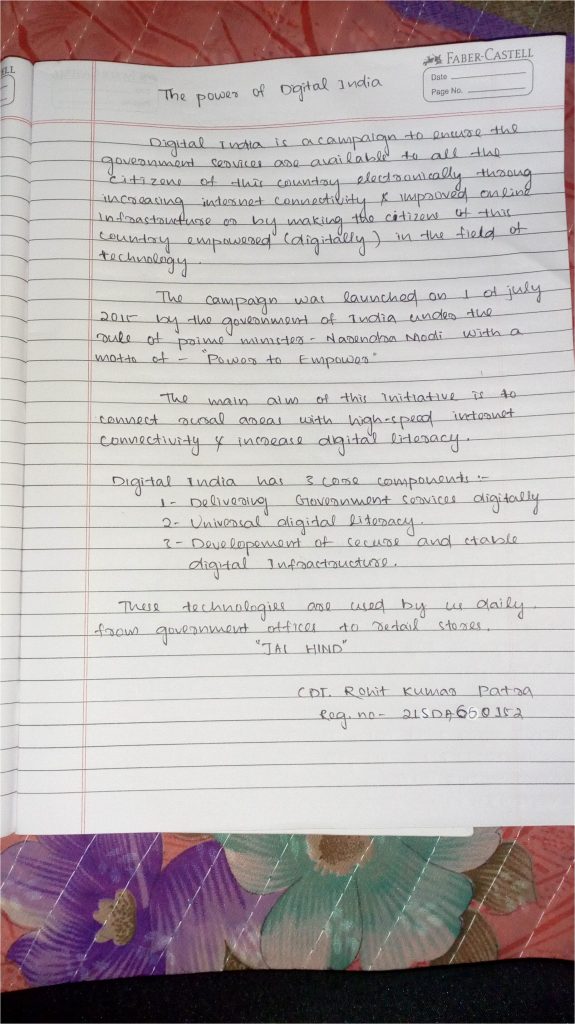 FABER-CASTELL
Date
Page No.
The power of Digital India
Digital India is a campaign to ensure the
government services are available to all the
citizens of this country electronically throung
increasing internet connectivity & improved online
Infrastructure or by making the citizens of this
country empowered (digitally) in the field of
technology.
The campaign was launched on 1 of july
2015 by the government of India under the
rule of prime minister - Narendra Modi with a
motto of - "Power to Empower"
The main aim of this initiative is to
connect rural areas with high-speed internet
connectivity & increase digital literacy.
Digital India has 3 core components :-
1- Delivering Government services digitally
2- Universal digital literacy.
3- Developement of secure and stable
digital Infractructure.
These technologies are used by us daily.
from government offices to retail stores.
"JAI HIND"
CDT. Rohit Kumar Patra
Reg. no- 21SDA660152